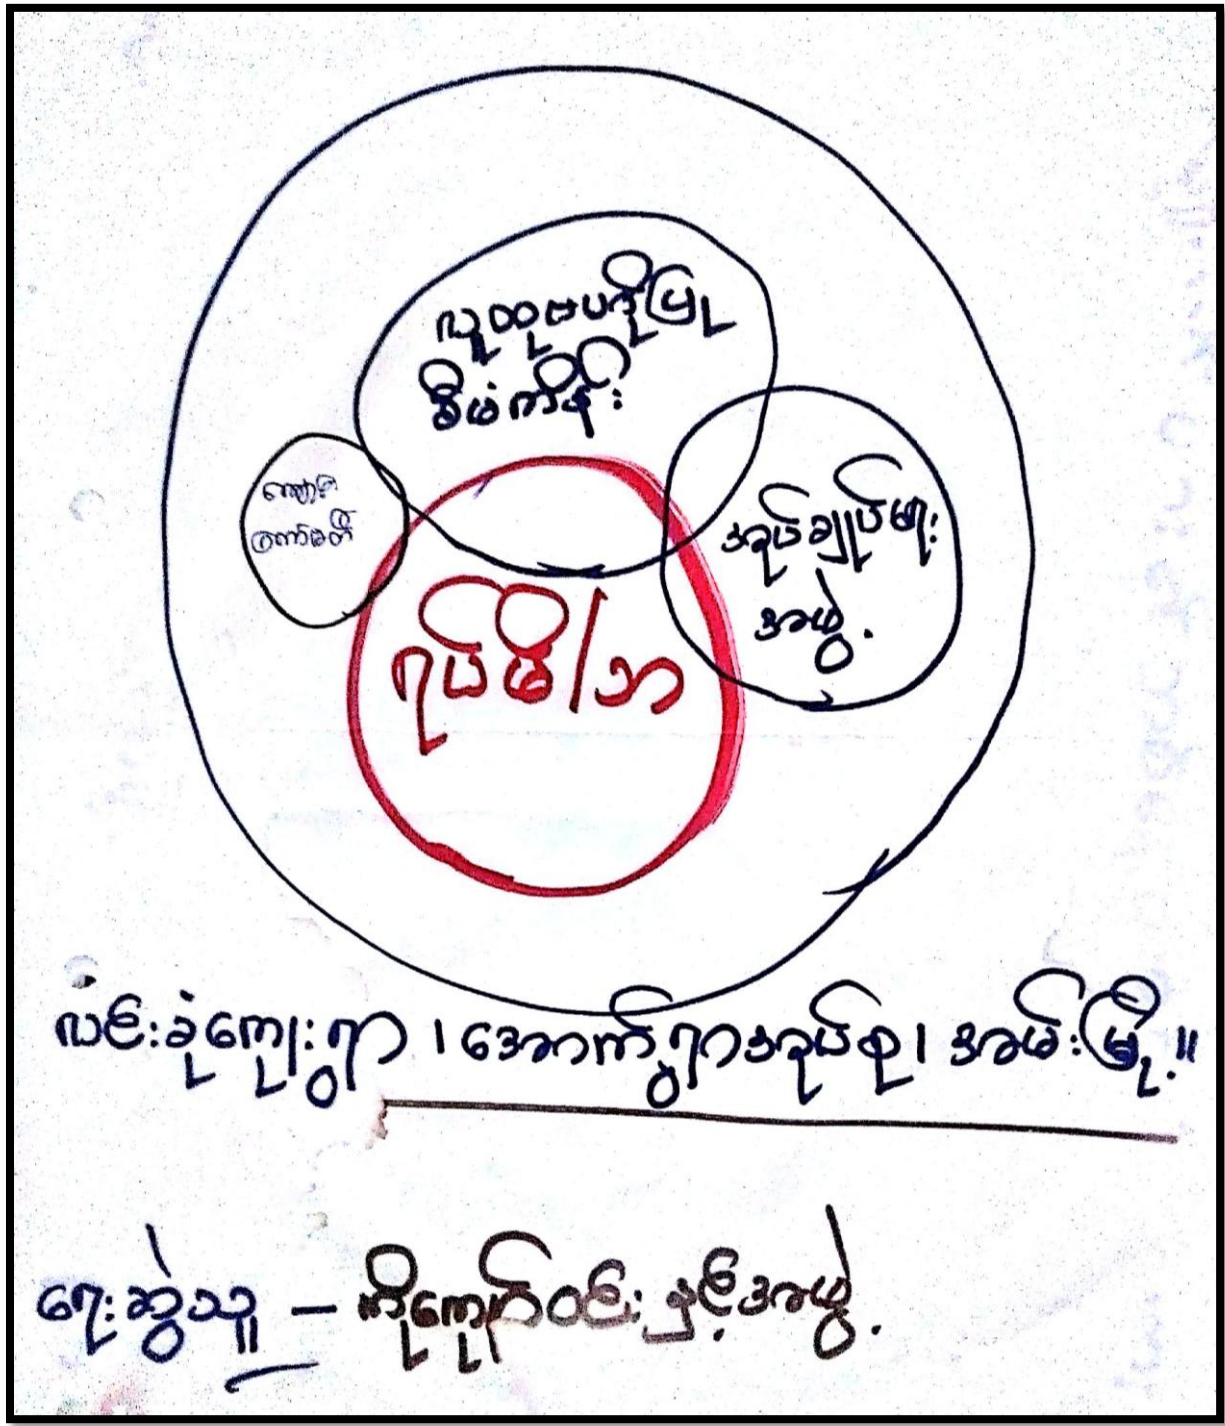 လူထုဗဟိုပြု
စီမံကိန်း
ကျောင်း
ကော်မတီ
အုပ်ချုပ်ရေး
အဖွဲ့
ရပ်မိ/ဘ
လင်းခုံကျေးရွာ ၊ အောက်ရွာအုပ်စု ၊ အမ်းမြို့ ။
ရေးဆွဲသူ – ကိုကျော်ဝင်း နှင့်အဖွဲ့